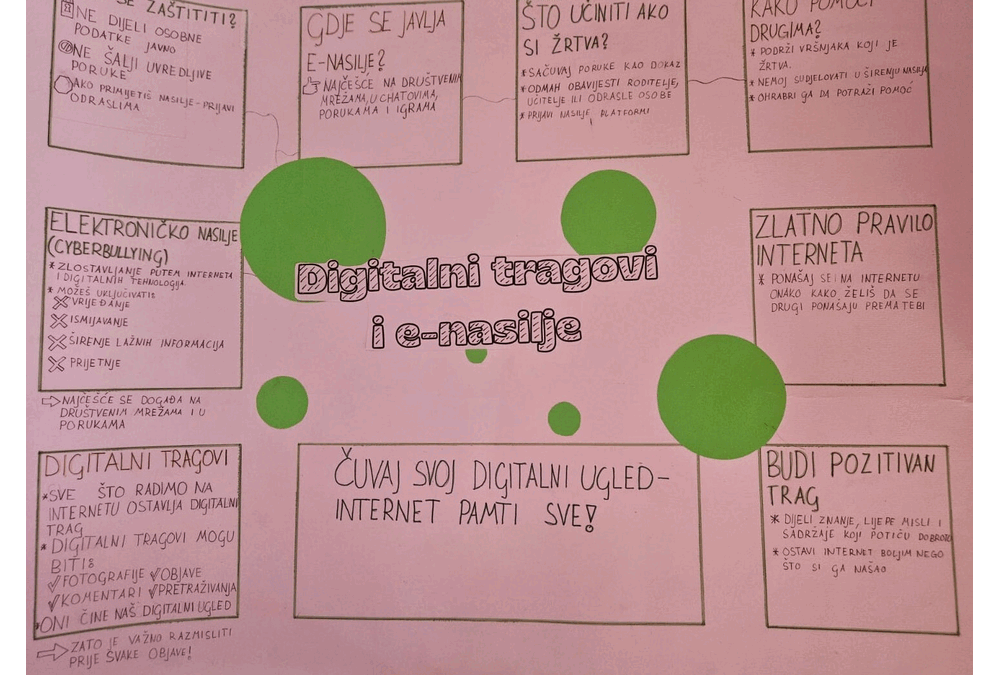 SE ZAŠTITITI?
NE DIJELI OSOBNE
PODATKE JAVNO
NE ŠALJI UVREDLJIVE
PORUKE
AKO PRIMIJETIŠ NASILJE - PRIJAVI
ODRASLIMA
GDJE SE JAVLJA
E-NASILJE?
NAJČEŠĆE NA DRUŠTVENIM
MREŽAMA, U CHATOVIMA,
PORUKAMA I IGRAMA
ŠTO UČINITI AKO
SI ŽRTVA?
*SAČUVAJ PORUKE KAO DOKAZ
*ODMAH OBAVIJESTI RODITELJE,
UČITELJE ILI ODRASLE OSOBE
*PRIJAVI NASILJE PLATFORMI
KAKO POMOĆI
DRUGIMA?
* PODRŽI VRŠNJAKA KOJI JE
ŽRTVA.
* NEMOJ SUDJELOVATI U ŠIRENJU NASILJA
* OHRABRI GA DA POTRAŽI POMOĆ
ELEKTRONIČKO NASILJE
(CYBERBULLYING)
* ZLOSTAVLJANJE PUTEM INTERNETA
I DIGITALNIH TEHNOLOGIJA
* MOŽEŠ UKLJUČIVATI:
VRIJEĐANJE
ISMIJAVANJE
ŠIRENJE LAŽNIH INFORMACIJA
PRIJETNJE
NAJČEŠĆE SE DOGAĐA NA
DRUŠTVENIM MREŽAMA I U
PORUKAMA
Digitalni tragovi
i e-nasilje
ZLATNO PRAVILO
INTERNETA
* PONAŠAJ SE I NA INTERNETU
ONAKO KAKO ŽELIŠ DA SE
DRUGI PONAŠAJU PREMA TEBI
DIGITALNI TRAGOVI
*SVE ŠTO RADIMO NA
INTERNETU OSTAVLJA DIGITALNI
TRAG
* DIGITALNI TRAGOVI MOGU
BITI:
✓FOTOGRAFIJE ✓OBJAVE
✓KOMENTARI ✓PRETRAŽIVANJA
*ONI ČINE NAŠ DIGITALNI UGLED
ZATO JE VAŽNO RAZMISLITI
PRIJE SVAKE OBJAVE!
ČUVAJ SVOJ DIGITALNI UGLED-
INTERNET PAMTI SVE!
BUDI POZITIVAN
TRAG
* DIJELI ZNANJE, LIJEPE MISLI I
SADRŽAJE KOJI POTIČU DOBROTU
* OSTAVI INTERNET BOLJIM NEGO
ŠTO SI GA NAŠAO